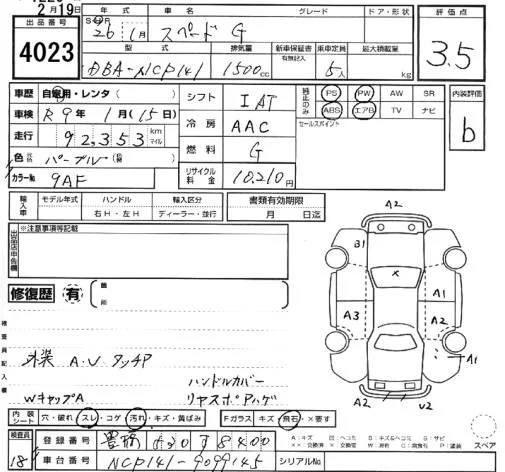 2月19日
出品番号
4023
年式 車名 グレード ドア・形状
26年1月 スペード G
型式 排気量 新車保証書 有無記入 乗車定員 最大積載量
DBA-NCP141 1500cc 5人 kg
評価点
3.5
車歴 自家用・レンタ( )
車検 R9年1月(15日)
走行 92,353 km マイル
色 元色 パープル 替
カラーNo 9AF
シフト IAT
冷房 AAC
燃料 G
リサイクル料金 10,210円
純正のみ
PS PW AW SR
ABS エアB TV ナビ
セールスポイント
内装評価
b
輸入車 モデル年式 ハンドル 輸入区分
右H・左H ディーラー・並行
書類有効期限
月 日迄
出品店申告欄
※注意事項等記載
修復歴 有
箇所
検査員記入欄
外装 A.U タッチP
ハンドルカバー
Wキャップ A リヤスポ Pハゲ
A2
B1
X
A1
A3
A2
A1
A2
U2
内装シート 穴・破れ・スレ・コゲ・汚れ・キズ・黄ばみ
Fガラス キズ・飛石・×要す
A:キズ U:凹ミ B:キズ&ヘコミ S:サビ
スペア
検査員
18
登録番号 豊橋
車台番号 NCP141-9099145
シリアルNo